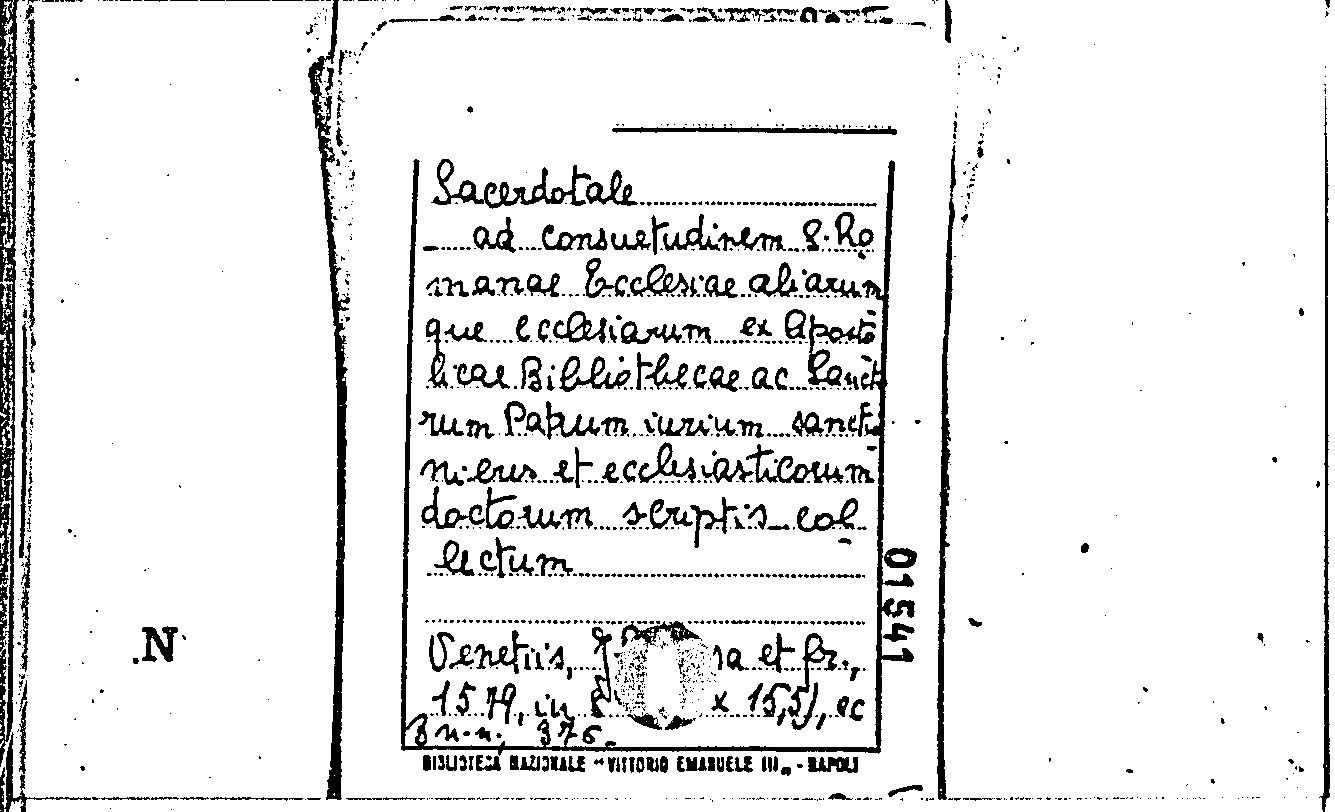 Sacerdotale
_ ad consuetudinem S. Ro
manae Ecclesiae aliarum
que ecclesiarum ex Aposto
licae Bibliothecae ac Sancto
rum Patrum iurium sanctio
nibus et ecclesiasticorum
doctorum scriptis col
lectum
Venetiis, et fr.,
1579, in x 15,5),
3 n.n., 376.
BIBLIOTECA NAZIONALE "VITTORIO EMANUELE III„ - NAPOLI
01541
.N